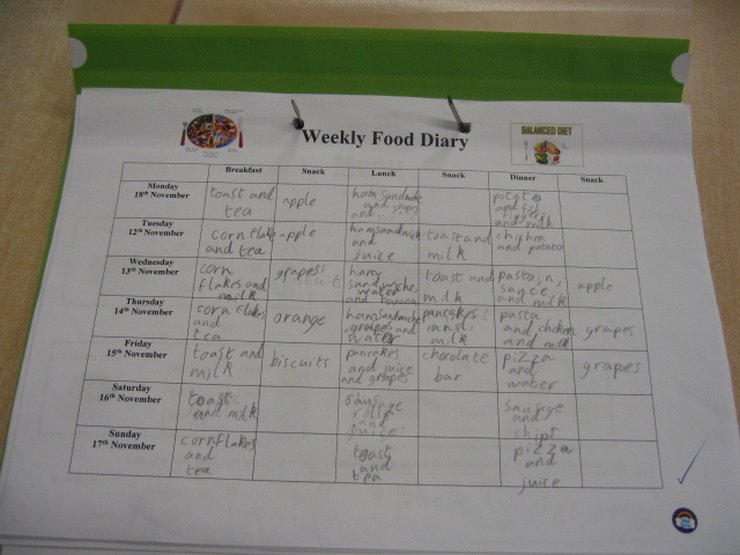 BALANCED DIET
Weekly Food Diary
Breakfast Snack Lunch Snack Dinner Snack
Monday
18th November
toast and
tea
apple
ham sandwiche
and
and
potato
and
and milk
Tuesday
12th November
corn flake
and tea
apple
ham sandwich
and
juice
toast and
milk
chicken
and potato
Wednesday
13th November
corn
flakes and
milk
grapess
ham
sandwiche,
water
and banana
toast and
milk
pasta, n,
sauce
and milk
apple
Thursday
14th November
corn flakes
and
tea
orange
ham sandwiche
, grapes and
water
pancakes
and
milk
pasta
and chicken
and milk
grapes
Friday
15th November
toast and
milk
biscuits
pancakes
and juice
and grapes
chocolate
bar
pizza
and
water
grapes
Saturday
16th November
toast
and milk
sausage
rolls
and
juice
sausage
and
chips
Sunday
17th November
cornflakes
and
tea
toast
and
tea
pizza
and
juice